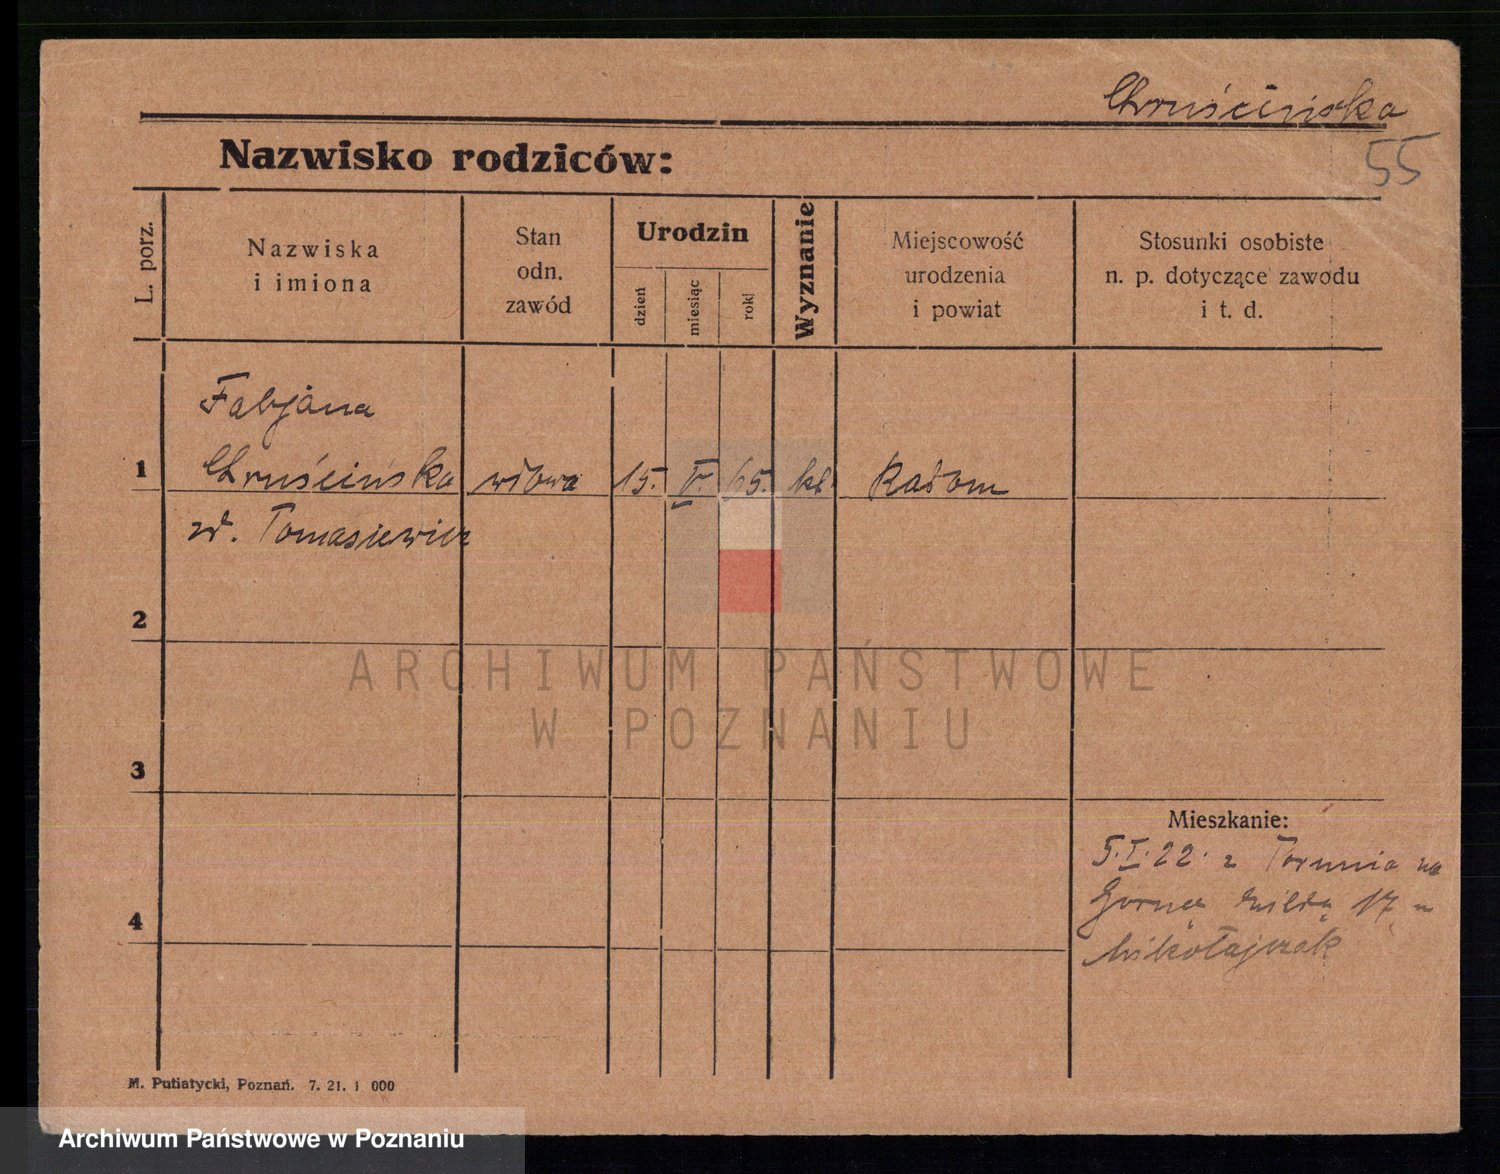 Chruścińska
55
Nazwisko rodziców:
L. porz.
Nazwiska
i imiona
Stan
odn.
zawód
Urodzin
dzień
miesiąc
rok
Wyznanie
Miejscowość
urodzenia
i powiat
Stosunki osobiste
n. p. dotyczące zawodu
i t. d.
Fabjana
1 Chruścińska wdowa 15. V. 65. kt. Radom
zd. Tomasiewicz
2
ARCHIWUM PAŃSTWOWE
W POZNANIU
3
Mieszkanie:
5.I.22. z Torunia na
4 Górną Wildę 17 u
Mikołajczak
M. Putiatycki, Poznań. 7. 21. 1 000
Archiwum Państwowe w Poznaniu